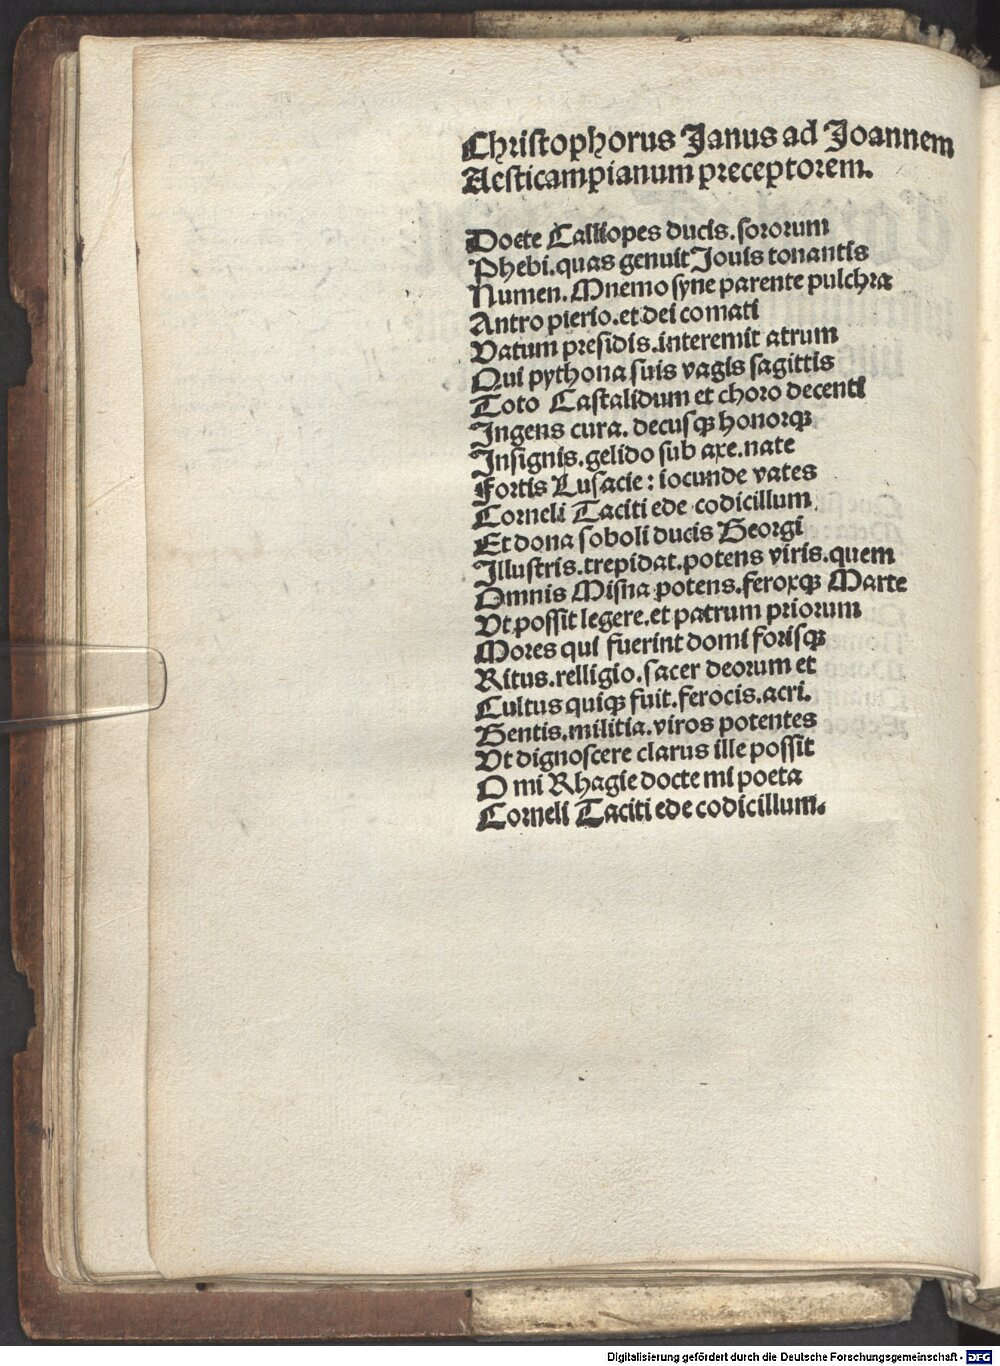 Christophorus Janus ad Joannem
Aesticampianum preceptorem.
Docte Calliopes ducis. sororum
Phebi. quas genuit Jouis tonantis
Numen. Mnemosyne parente pulchra
Antro pierio. et dei comati
Vatum presidis. interemit atrum
Qui pythona suis vagis sagittis
Toto Castalidum et choro decenti
Ingens cura. decusqꝫ honorqꝫ
Insignis. gelido sub axe. nate
Fortis Lusacie: iocunde vates
Corneli Taciti ede codicillum.
Et dona soboli ducis Georgi
Illustris. trepidat. potens viris. quem
Omnis Misna potens. feroxqꝫ Marte
Vt possit legere. et patrum priorum
Mores qui fuerint domi forisqꝫ
Ritus. relligio. sacer deorum et
Cultus quiqꝫ fuit. ferocis. acri.
Gentis. militia. viros potentes
Vt dignoscere clarus ille possit
O mi Rhagie docte mi poeta
Corneli Taciti ede codicillum.
Digitalisierung gefördert durch die Deutsche Forschungsgemeinschaft - DFG